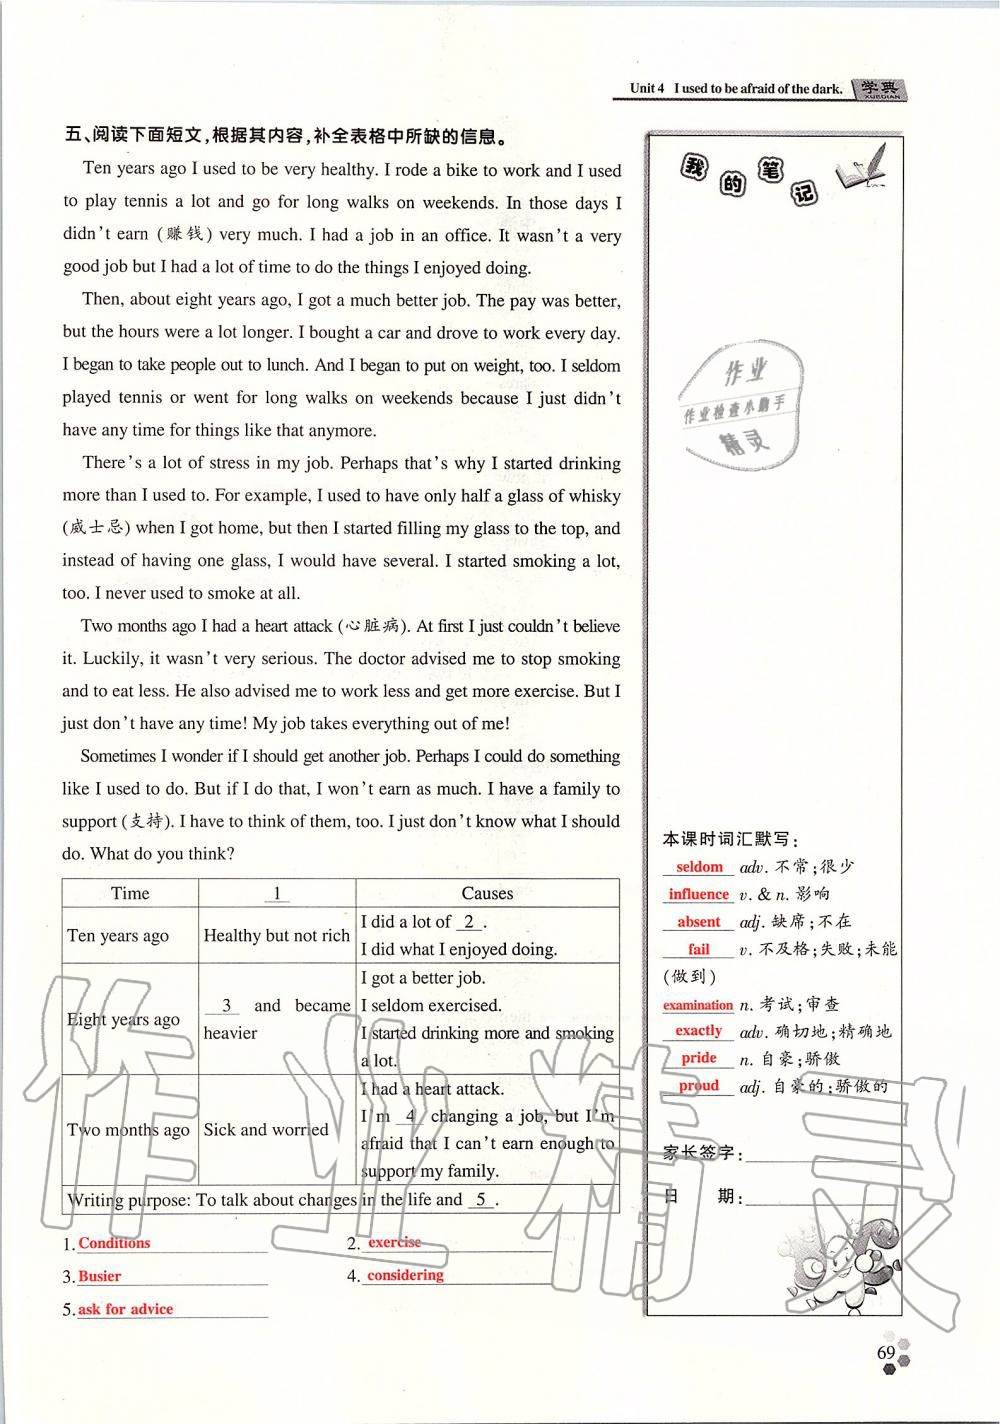 Unit 4 I used to be afraid of the dark. 学典
XUEDIAN
五、阅读下面短文,根据其内容,补全表格中所缺的信息。
Ten years ago I used to be very healthy. I rode a bike to work and I used
to play tennis a lot and go for long walks on weekends. In those days I
didn't earn (赚钱) very much. I had a job in an office. It wasn't a very
good job but I had a lot of time to do the things I enjoyed doing.
Then, about eight years ago, I got a much better job. The pay was better,
but the hours were a lot longer. I bought a car and drove to work every day.
I began to take people out to lunch. And I began to put on weight, too. I seldom
played tennis or went for long walks on weekends because I just didn't
have any time for things like that anymore.
There's a lot of stress in my job. Perhaps that's why I started drinking
more than I used to. For example, I used to have only half a glass of whisky
(威士忌) when I got home, but then I started filling my glass to the top, and
instead of having one glass, I would have several. I started smoking a lot,
too. I never used to smoke at all.
Two months ago I had a heart attack (心脏病). At first I just couldn't believe
it. Luckily, it wasn't very serious. The doctor advised me to stop smoking
and to eat less. He also advised me to work less and get more exercise. But I
just don't have any time! My job takes everything out of me!
Sometimes I wonder if I should get another job. Perhaps I could do something
like I used to do. But if I do that, I won't earn as much. I have a family to
support (支持). I have to think of them, too. I just don't know what I should
do. What do you think?
Time 1 Causes
Ten years ago Healthy but not rich I did a lot of 2 .
I did what I enjoyed doing.
Eight years ago 3 and became heavier I got a better job.
I seldom exercised.
I started drinking more and smoking
a lot.
Two months ago Sick and worried I had a heart attack.
I'm 4 changing a job, but I'm
afraid that I can't earn enough to
support my family.
Writing purpose: To talk about changes in the life and 5 .
1. Conditions 2. exercise
3. Busier 4. considering
5. ask for advice
我的笔记
作业
作业检查小助手
精灵
本课时词汇默写:
seldom adv. 不常;很少
influence v. & n. 影响
absent adj. 缺席;不在
fail v. 不及格;失败;未能
(做到)
examination n. 考试;审查
exactly adv. 确切地;精确地
pride n. 自豪;骄傲
proud adj. 自豪的;骄傲的
家长签字:
日 期:
作业精灵
69